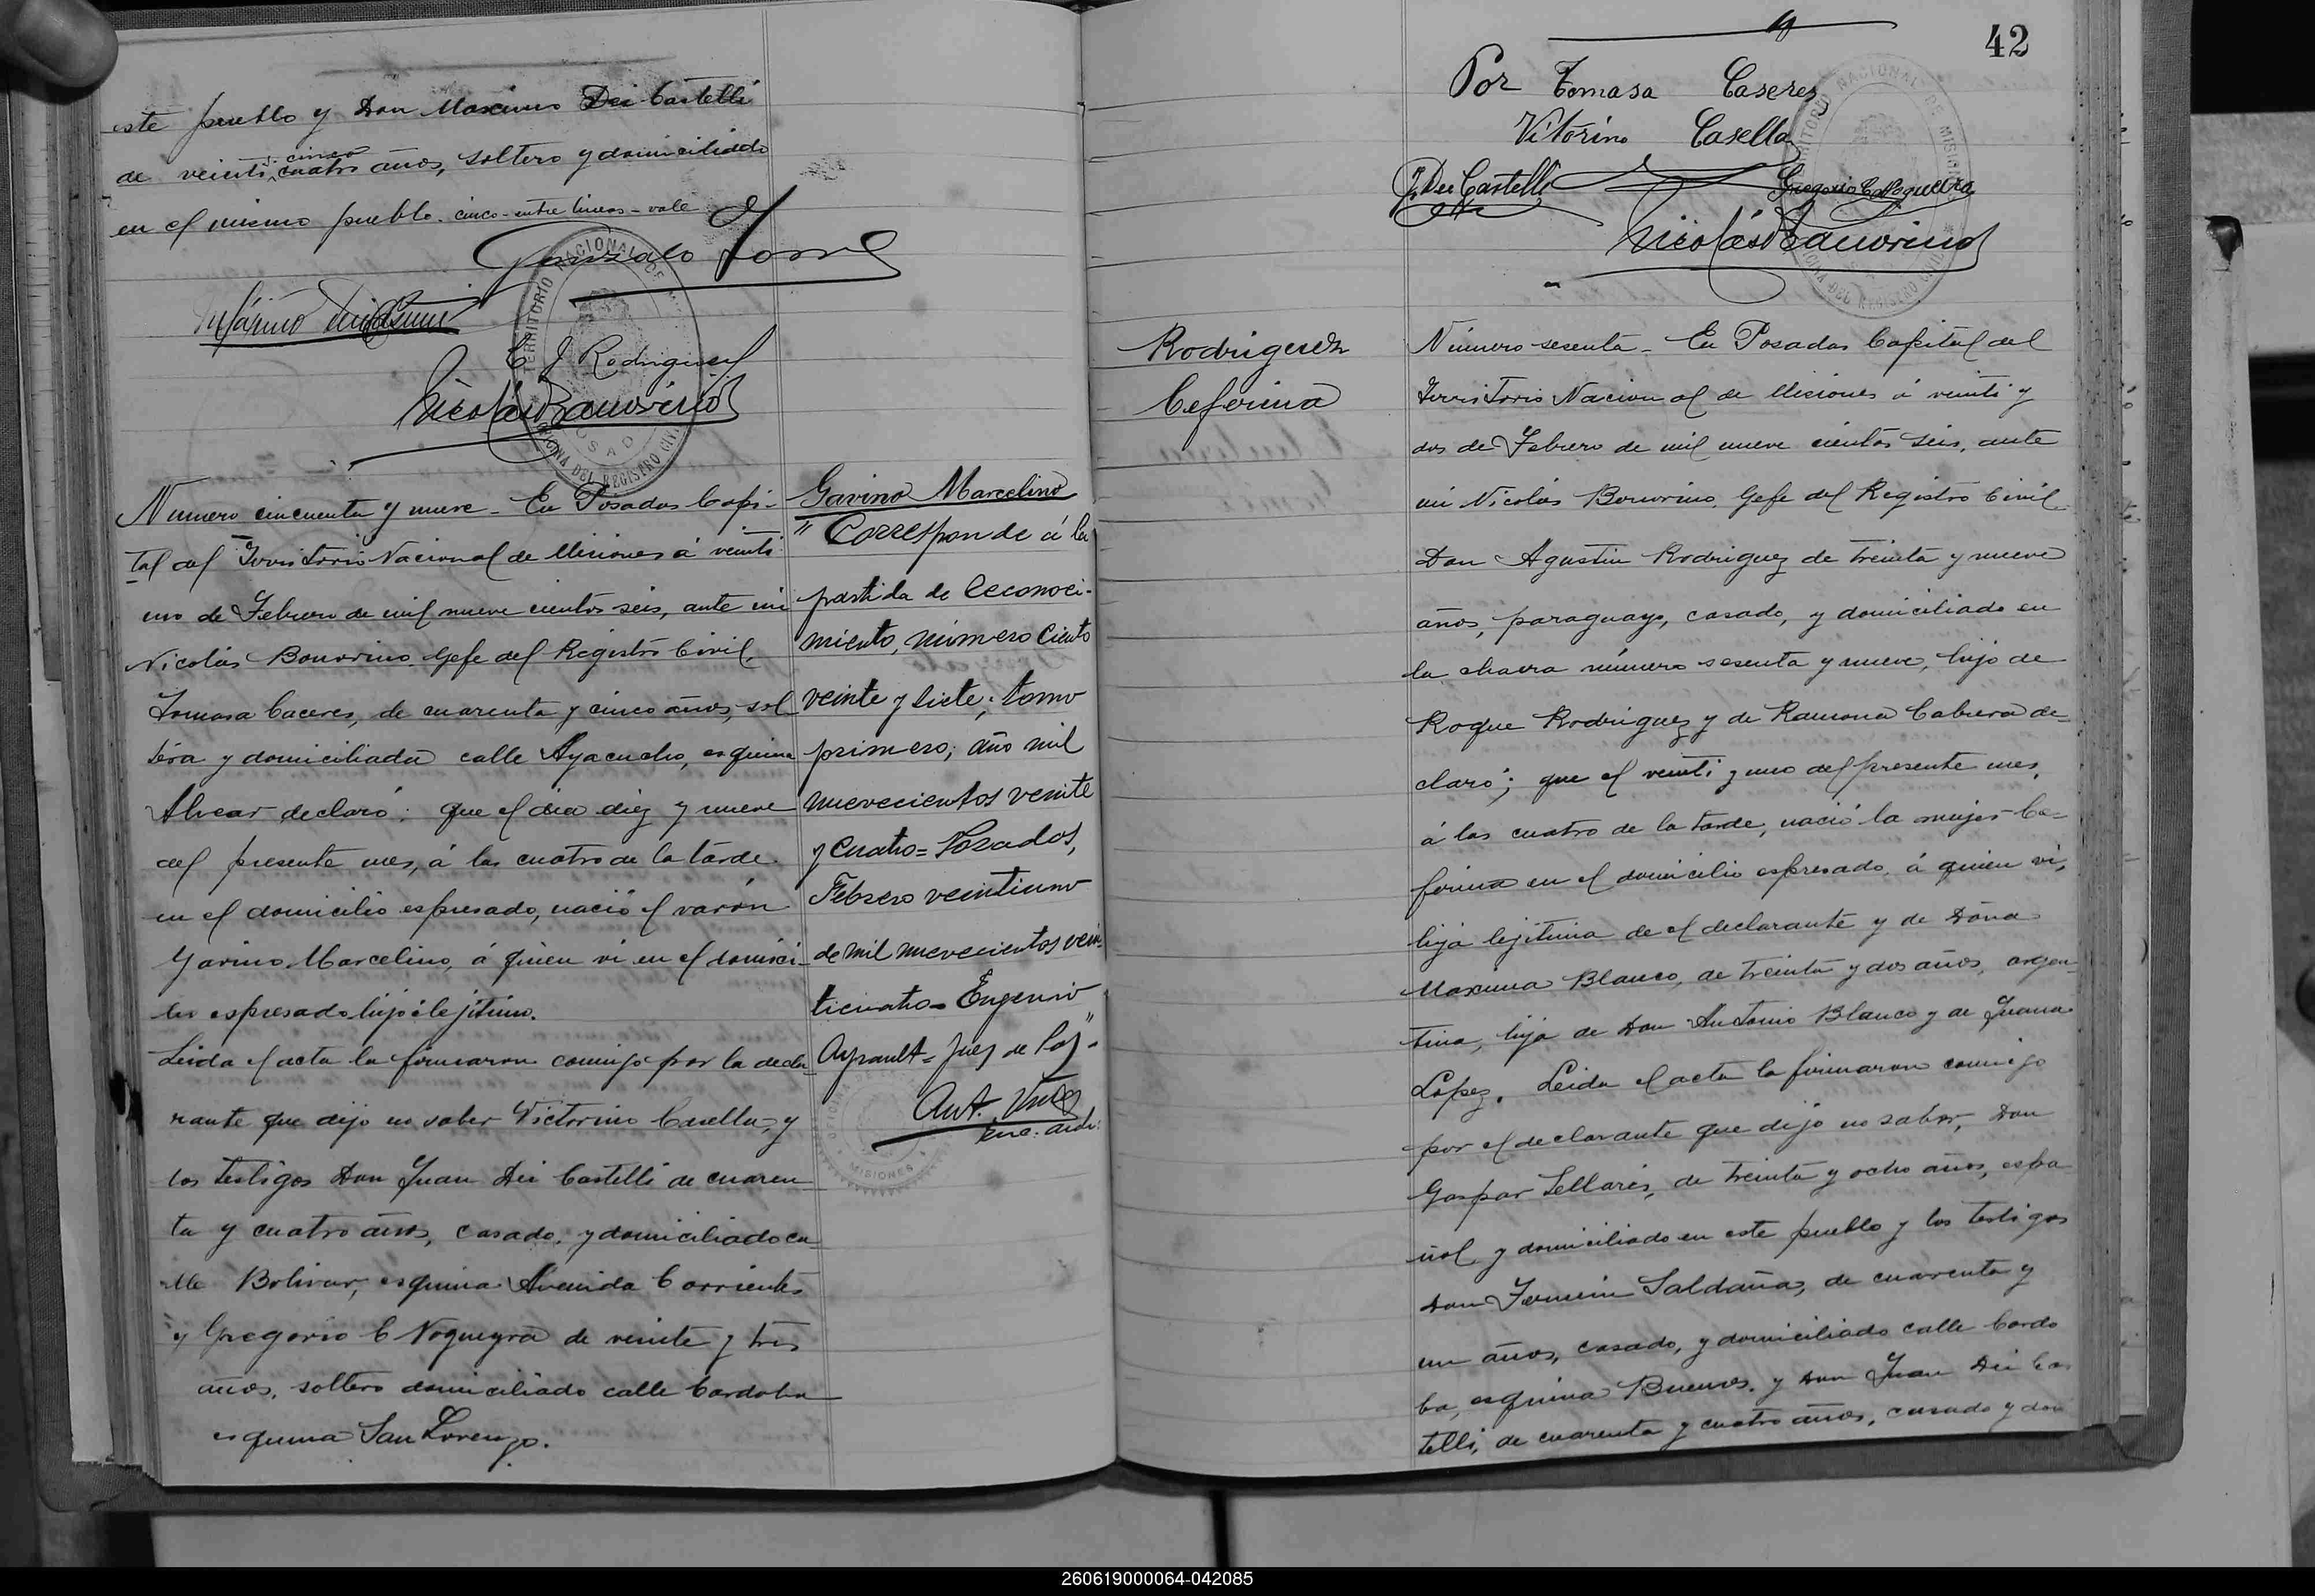 este pueblo y Don Maximo Dei Castelli
de veinti cinco cuatro años, soltero y domiciliado
en el mismo pueblo. cinco-entre lineas-vale
Gonzalo Torre
C J Rodriguez
Nicolás Bonorino
TERRITORIO NACIONAL DE
OFICINA DEL REGISTRO CIVIL
Numero cincuenta y nueve - En Posadas Capi-
tal del Territorio Nacional de Misiones á veinti
uno de Febrero de mil nueve cientos seis, ante mi
Nicolás Bonorino, Gefe del Registro Civil,
Tomasa Caceres, de cuarenta y cinco años, sol
tera y domiciliada calle Ayacucho, esquina
Alvear declaró: que el dia diez y nueve
del presente mes, á las cuatro de la tarde
en el domicilio espresado, nació el varón
Gavino Marcelino, á quien vi en el domici-
lio espresado hijo ilejitimo.
Leida el acta la firmaron comigo por la decla
rante que dijo no saber Victorino Casella, y
los testigos Don Juan Dei Castelli de cuaren
ta y cuatro años, casado, y domiciliado ca
lle Bolivar, esquina Avenida Corrientes
y Gregorio C Nogueyra de veinte y tres
años, soltero domiciliado calle Cordoba
esquina San Lorenzo.
Gavino Marcelino
" Corresponde á la
partida de reconoci-
miento, número ciento
veinte y siete; tomo
primero; año mil
nuevecientos veinte
y cuatro = Posadas,
Febrero veintiuno
de mil nuevecientos vein-
ticuatro = Eugenio
Ayrault = Juez de Paz"
MISIONES
42
Por Tomasa Caseres
Vitorino Casella
J. Dei Castelli Gregorio C Nogueira
Nicolás Bonorino
TERRITORIO NACIONAL DE MISIONES
OFICINA DEL REGISTRO CIVIL
Rodriguez
Ceferina
Número sesenta - En Posadas Capital del
Territorio Nacional de Misiones á veinti y
dos de Febrero de mil nueve cientos seis, ante
mi Nicolás Bonorino, Gefe del Registro Civil,
Don Agustin Rodriguez de treinta y nueve
años, paraguayo, casado, y domiciliado en
la chacra número sesenta y nueve, hijo de
Roque Rodriguez y de Ramona Cabrera de-
claró; que el veinti y uno del presente mes,
á las cuatro de la tarde, nació la mujer Ce-
ferina en el domicilio espresado, á quien vi,
hija lejitima de el declarante y de Doña
Maxima Blanco, de treinta y dos años, argen-
tina, hija de Don Antonio Blanco y de Juana
Lopez. Leida el acta la firmaron comigo
por el declarante que dijo no saber, Don
Gaspar Sellarés, de treinta y ocho años, espa
ñol y domiciliado en este pueblo y los testigos
Don Fermin Saldaña, de cuarenta y
un años, casado, y domiciliado calle Cordo
ba, esquina Buenos. y Don Juan Dei Cas
telli, de cuarenta y cuatro años, casado y dom
260619000064-042085